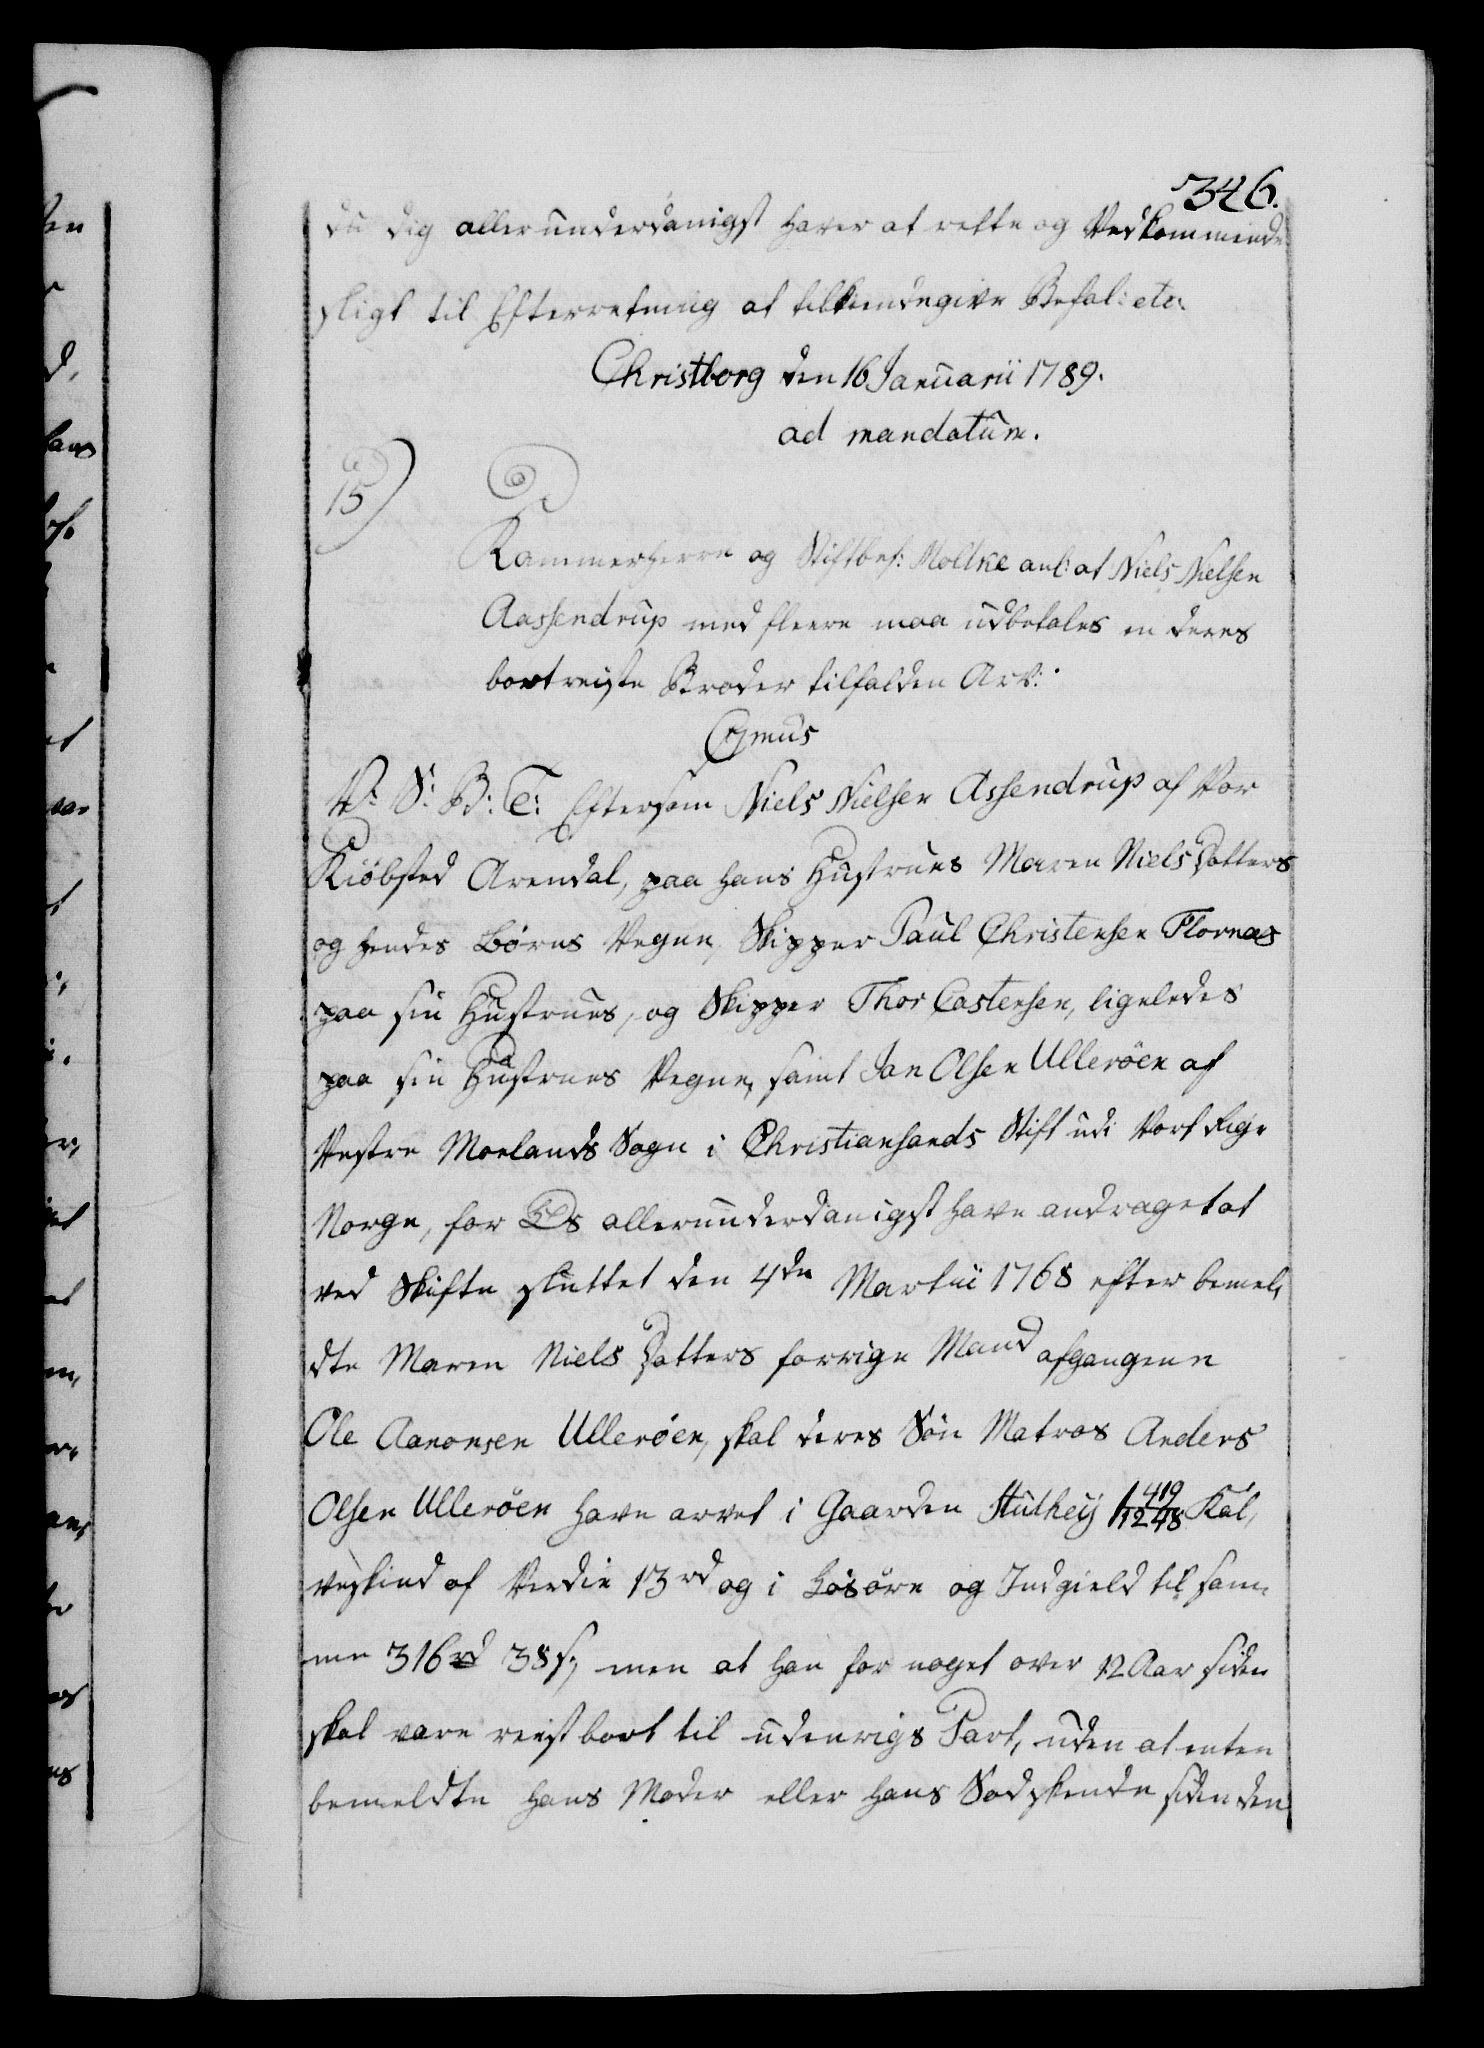 346.
du dig allerunderdanigst haver at rette og Vedkommende
sligt til Efterretning at tilkiendegive Befal: etc.
Christborg den 16 Januarii 1789.
ad mandatum.
15)
Kammerherre og Stiftbef: Moltke anl: at Niels Nielsen
Aassendrup med fleere maa udbetales en deres
bortreiste Broder tilfalden Arv:
Cgmus
V: S: B: T: Eftersom Niels Nielsen Assendrup af Vor
Kiöbsted Arendal, paa hans Hustrues Maren Niels Datters
og hendes Börns Vegne, Skipper Paul Christensen Flornæs
paa sin Hustrues, og Skipper Thor Castensen, ligeledes
paa sin Hustrues Vegne, samt Jan Olsen Ulleröen af
Vestre Moelands Sogn i Christiansands Stift udi Vort Rige
Norge, for Os allerunderdanigst have andraget at
ved Skifte sluttet den 4de Martii 1768 efter bemel,
dte Maren Niels Datters forrige Mand afgangene
Ole Aanonsen Ulleröen, skal deres Sön Matros Anders
Olsen Ulleröen have arvet i Gaarden 1 419/1248 Kal,
veskind af Verdie 13 rd og i Lösöre og Indgield til sam,
me 316 rd 38 s; men at han for noget over 12 Aar siden
skal være reist bort til udenrigs Part, uden at enten
bemeldte hans Moder eller hans Sodskende siden den